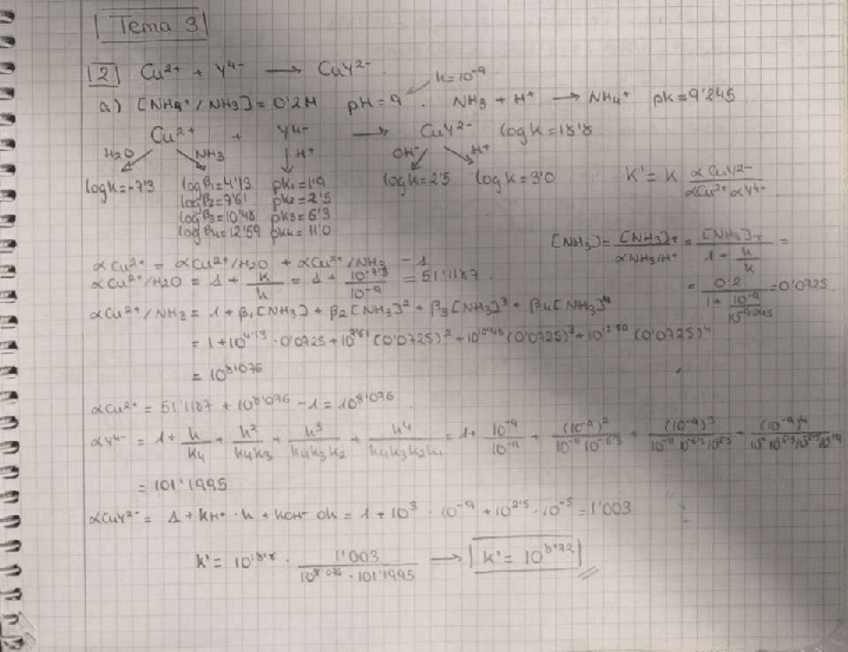 Tema 3
2 Cu²⁺ + Y⁴⁻ → CuY²⁻
h=10⁻⁹
a) [NH₄⁺/NH₃]=0'2M pH=9. NH₃ + H⁺ → NH₄⁺ pk=9'245
Cu²⁺ + Y⁴⁻ → CuY²⁻ logk=18'8
H₂O NH₃ H⁺ OH⁻ H⁺
logk=-7'3 logβ₁=4'13 pk₁=1'9 logk=2'5 logk=3'0 K'=K αCuY²⁻ / αCu²⁺ αY⁴⁻
logβ₂=7'61 pk₂=2'5
logβ₃=10'48 pk₃=6'3
logβ₄=12'59 pk₄=11'0
[NH₃]= [NH₃]ₜ / αNH₃/H⁺ = [NH₃]ₜ / 1+ h/k =
= 0'2 / 1+ 10⁻⁹/10⁻⁹'²⁴⁵ =0'0725.
αCu²⁺ = αCu²⁺/H₂O + αCu²⁺/NH₃ - 1
αCu²⁺/H₂O = 1 + k/h = 1 + 10⁻⁷'³/10⁻⁹ = 51'1187.
αCu²⁺/NH₃ = 1 + β₁[NH₃] + β₂[NH₃]² + β₃[NH₃]³ + β₄[NH₃]⁴
= 1+10⁴'¹³ · 0'0725+10⁷'⁶¹(0'0725)²+10¹⁰'⁴⁸(0'0725)³+10¹²'⁵⁹(0'0725)⁴
= 10⁸'⁰⁷⁶
αCu²⁺ = 51'1187 + 10⁸'⁰⁷⁶ - 1 = 10⁸'⁰⁷⁶
αY⁴⁻ = 1+ h/k₄ + h²/k₄k₃ + h³/k₄k₃k₂ + h⁴/k₄k₃k₂k₁ = 1+ 10⁻⁹/10⁻¹¹ + (10⁻⁹)²/10⁻¹¹10⁻⁶'³ + (10⁻⁹)³/10⁻¹¹10⁻⁶'³10⁻²'⁵ + (10⁻⁹)⁴
= 101'1995
αCuY²⁻ = 1 + KH⁺ · h + KOH⁻ OH = 1 + 10³ · 10⁻⁹ + 10²'⁵ · 10⁻⁵ = 1'003
k' = 10¹⁸'⁸ · 1'003 / 10⁸'⁰⁷⁶ · 101'1995 → k' = 10⁸'⁷²